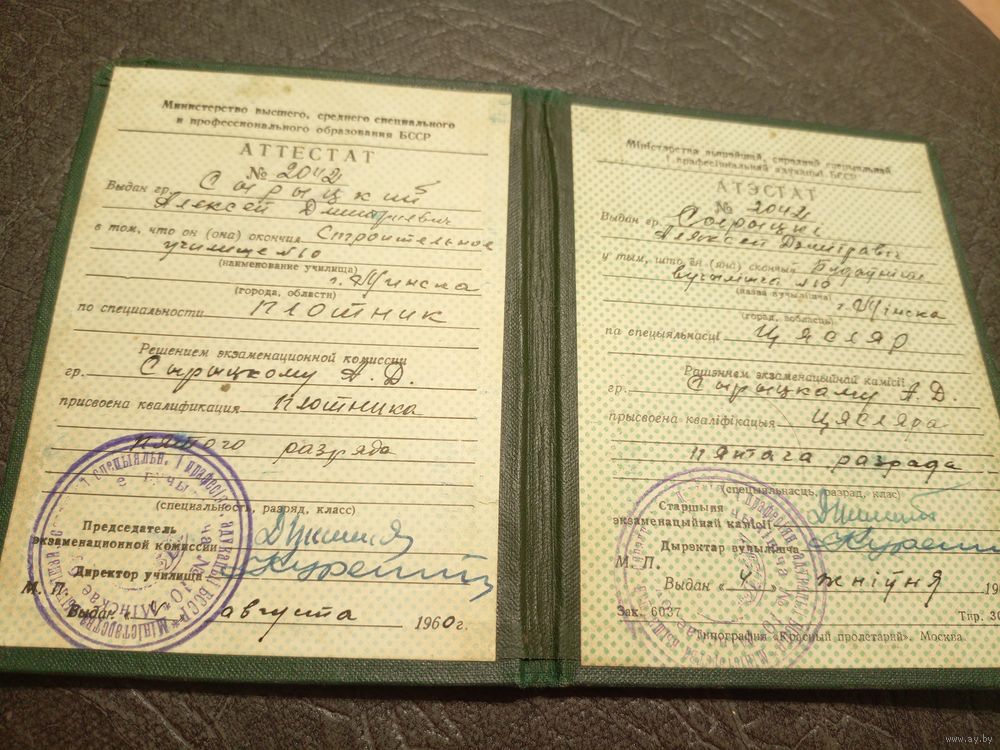 Министерство высшего, среднего специального
и профессионального образования БССР
АТТЕСТАТ
№ 2042
Выдан гр. Сырыцкий
Алексей Дмитриевич
в том, что он (она) окончил Строительное
училище №10
(наименование училища)
г. Минска
(города, области)
по специальности плотник
Решением экзаменационной комиссии
гр. Сырыцкому А. Д.
присвоена квалификация плотника
пятого разряда
(специальность, разряд, класс)
Председатель
экзаменационной комиссии
Директор училища
М. П.
Выдан « 4 августа 1960 г.
Міністэрства вышэйшай, сярэдняй спецыяльнай
і прафесіянальнай адукацыі БССР
АТЭСТАТ
№ 2042
Выдан гр. Сырыцкі
Аляксей Дзмітравіч
у тым, што ён (яна) скончыл Будаўнічае
вучылішча №10
(назва вучылішча)
г. Мінска
(горад, вобласць)
па спецыяльнасці Цясляр
Рашэннем экзаменацыйнай камісіі
гр. Сырыцкаму А. Д
прысвоена кваліфікацыя цясляра
пятага разрада
(спецыяльнасць, разрад, клас)
Старшыня
экзаменацыйнай камісіі
Дырэктар вучылішча
М. П.
Выдан « 4 жніўня 19
Зак. 6037
Тир. 30
Типография «Красный пролетарий». Москва.
www.ay.by